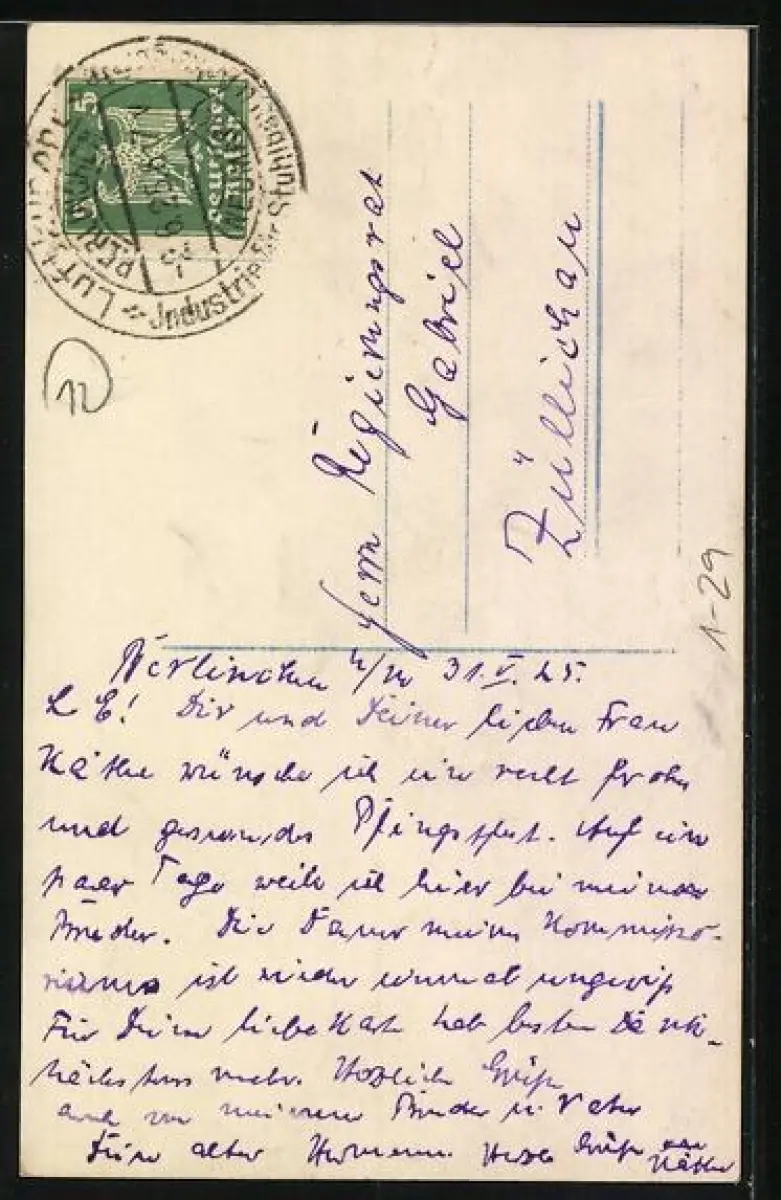 5
Deutsches Reich
LUFTKURORT
BERLINCHEN
(NEUMARK)
Industrie für Stuhlbau
12
Herrn Regierungsrat
Gabriel
Züllichau
1-29
Berlinchen N/M 31.V.25.
L E! Dir und Deiner lieben Frau
Käthe wünsche ich ein recht frohes
und gesundes Pfingstfest. Auf ein
paar Tage weile ich hier bei meinem
Bruder. Die Dauer meines Kommisso-
riums ist wieder einmal ungewiß
Für Deine liebe Karte hab besten Dank
nächstens mehr. Herzliche Grüße
auch von meinem Bruder u. Vater
Dein alter Hermann. Herzl Grüße an Käthe